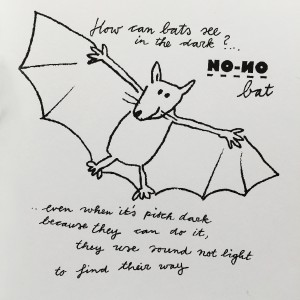 How can bats see
in the dark?...
NO-NO
bat
..even when it's pitch dark
because they can do it,
they use sound not light
to find their way